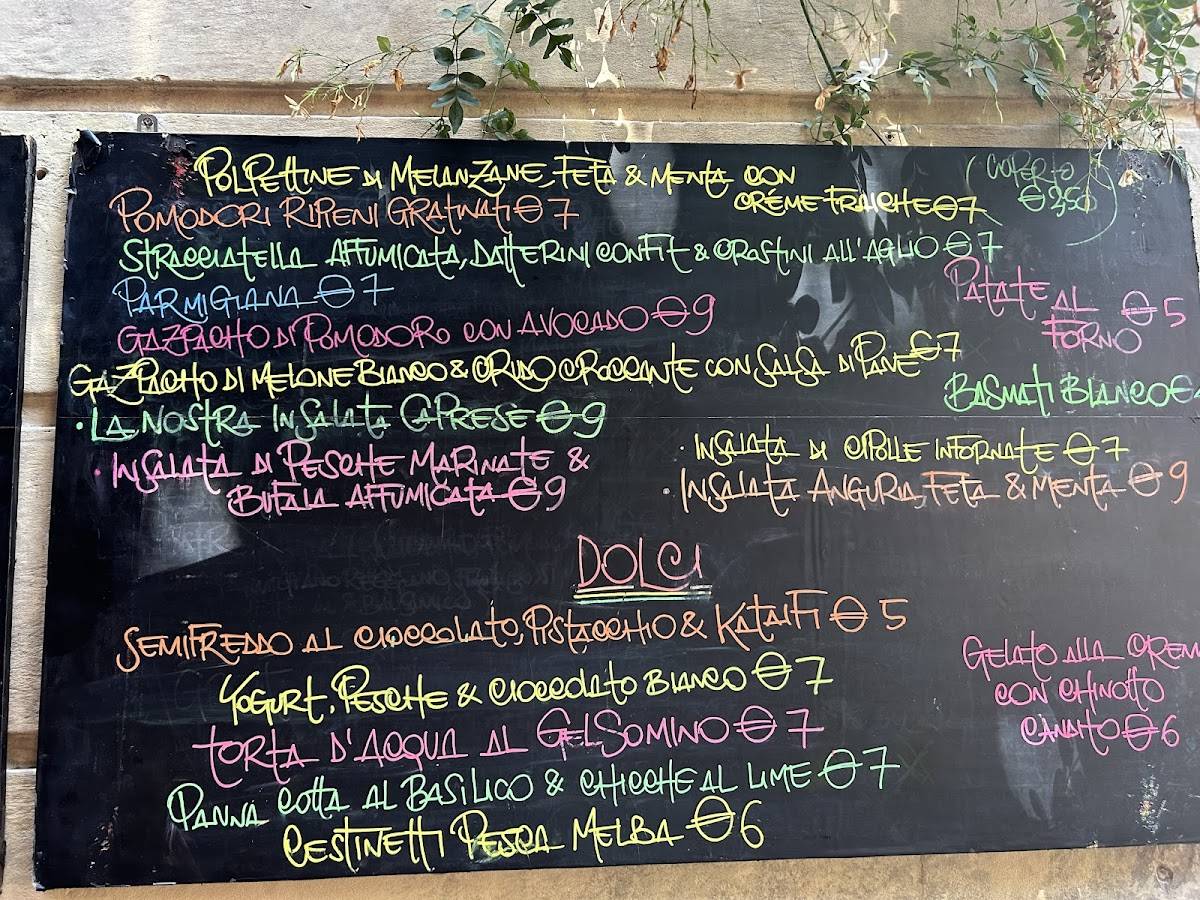 POLPETTINE DI MELANZANE, FETA & MENTA CON
CRÉME FRAICHE € 7
(COPERTO
€ 3,50)
POMODORI RIPENI GRATINATI € 7
STRACCIATELLA AFFUMICATA, DATTERINI CONFIT & CROSTINI ALL'AGLIO € 7
PARMIGIANA € 7
PATATE AL
FORNO € 5
GAZPACHO DI POMODORO CON AVOCADO € 9
GAZPACHO DI MELONE BIANCO & CRUDO CROCCANTE CON SALSA DI PANE € 7
BASMATI BIANCO €
· LA NOSTRA INSALATA CAPRESE € 9
· INSALATA DI PESCHE MARINATE &
BUFALA AFFUMICATA € 9
· INSALATA DI CIPOLLE INFORNATE € 7
· INSALATA ANGURIA, FETA & MENTA € 9
DOLCI
SEMIFREDDO AL CIOCCOLATO, PISTACCHIO & KATAIFI € 5
YOGURT, PESCHE & CIOCCOLATO BIANCO € 7
TORTA D'ACQUA AL GELSOMINO € 7
PANNA COTTA AL BASILICO & CHICCHE AL LIME € 7
CESTINETTI PESCA MELBA € 6
GELATO ALLA CREM
CON CHINOTTO
CANDITO € 6